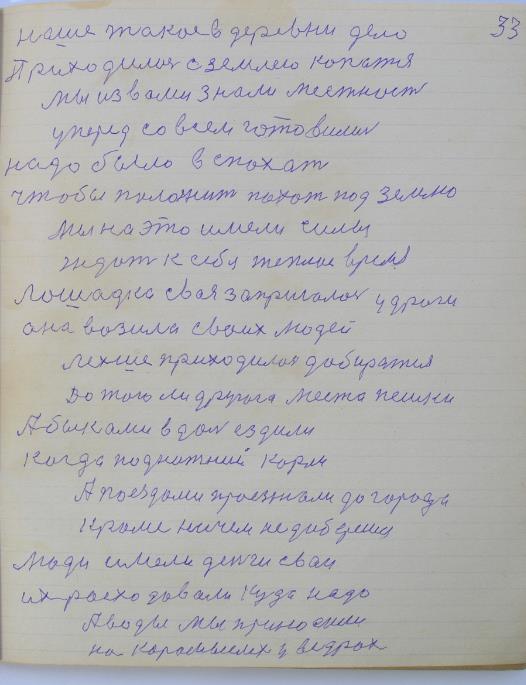 33
наше такое в деревни дело
Приходилос с землею копатя
мы из вами знали местност
уперед совсем готовилис
надо было вспохат
чтобы положит пахот под землю
мы на это имели силы
ждат к себя теплое время
Лошадка своя запригалос у дроги
она возила своих людей
лехше приходилос добиратя
До того ли другога места пешки
А быками вдол ездили
Когда подножний корм
А поездами проезжали до города
Кроме ничем не доберешя
Люди имели денги сваи
их росходовали куда надо
А воды мы приносили
на коромыслех у ведрах